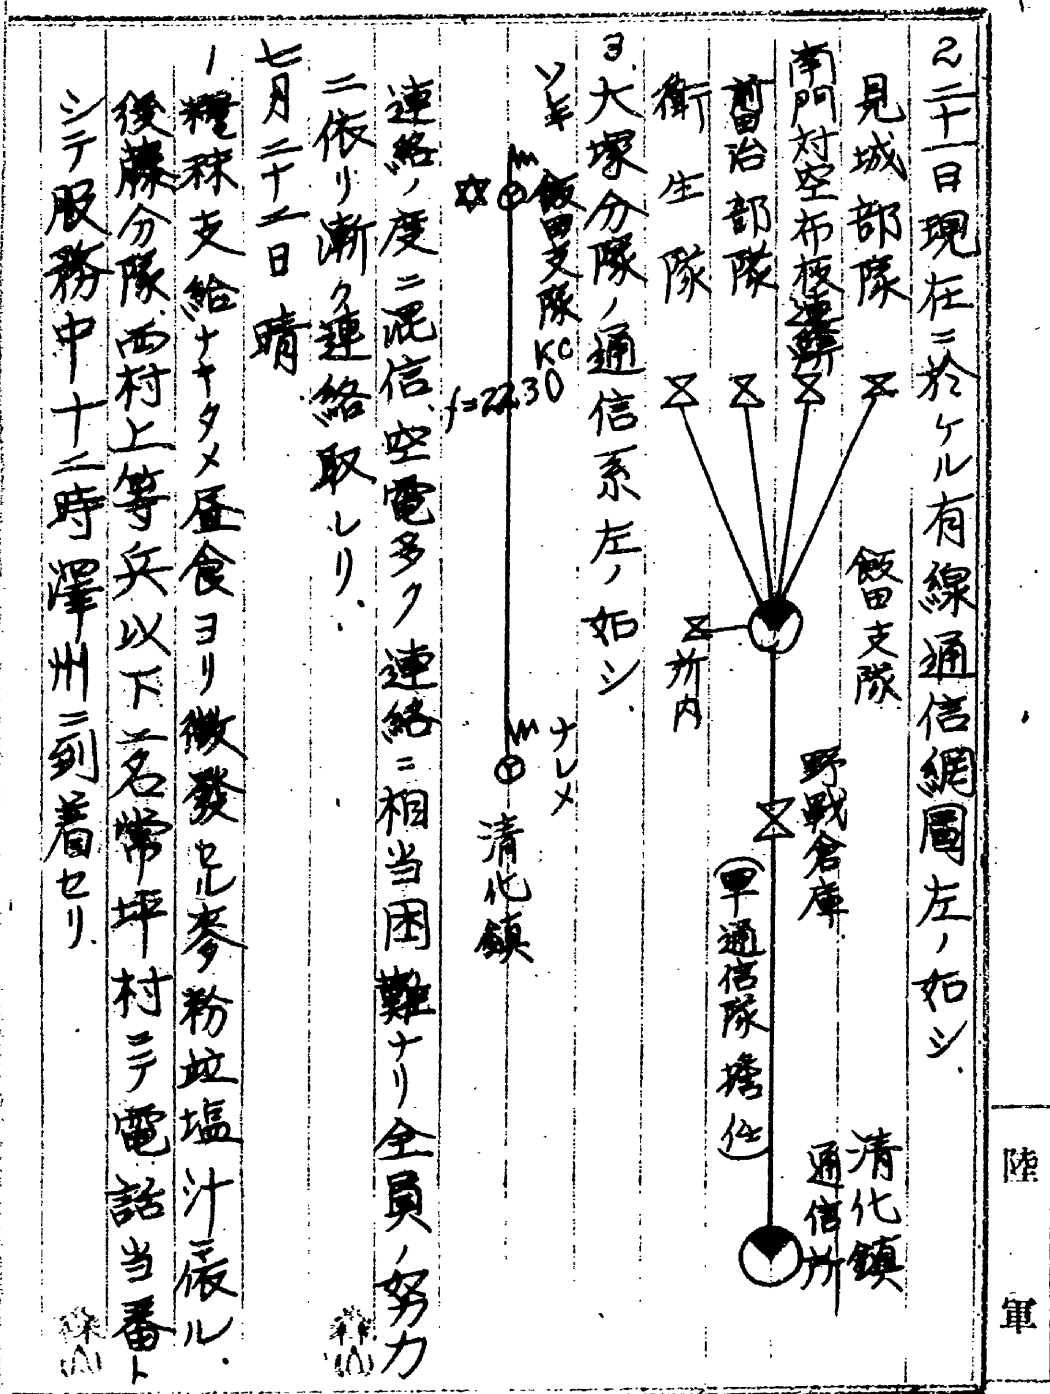 2 二十一日現在ニ於ケル有線通信網圖左ノ如シ.
見城部隊
飯田支隊
清化鎮
通信所
南門対空布板連絡所
野戰倉庫.
前田治部隊
(甲通信隊擔任)
衛生隊
所内
3. 大塚分隊ノ通信系左ノ如シ.
飯田支隊
KC
f=2230
ナレメ
清化鎮
連絡ノ度ニ混信、空電多ク連絡ニ相当困難ナリ全員ノ努力
ニ依リ漸ク連絡取レリ.
七月二十二日 晴
1 糧秣支給ナキタメ昼食ヨリ徴發セル麥粉並塩汁ニ依ル.
後藤分隊西村上等兵以下二名常坪村ニテ電話当番ト
シテ服務中十二時澤州ニ到着セリ.
陸軍